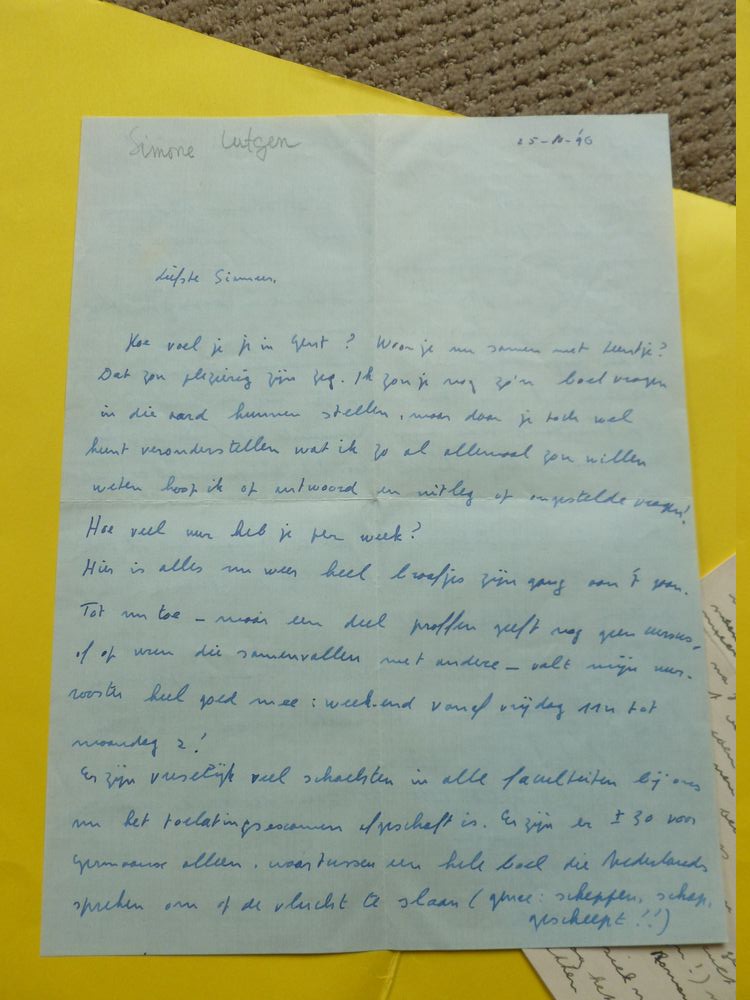 Simone Lutgen
25-10-'96
Liefste Simmer,
Hoe voel je je in Gent ? Woon je nu samen met Leentje ?
Dat zou plezierig zijn zeg. Ik zou je nog zo'n boel vragen
in die aard kunnen stellen, maar daar je toch wel
kunt veronderstellen wat ik zo al allemaal zou willen
weten hoop ik op antwoord en uitleg op ongestelde vragen!
Hoe veel uur heb je per week ?
Hier is alles nu weer heel braafjes zijn gang aan 't gaan.
Tot nu toe - maar een deel proffen geeft nog geen cursus,
of op uren die samenvallen met andere - valt mijn uur-
rooster heel goed mee : week-end vanaf vrijdag 11u tot
maandag 2 !
Er zijn vreselijk veel schachten in alle faculteiten bij ons
nu het toelatingsexamen afgeschaft is. Er zijn er ± 30 voor
Germaanse alleen, waartussen een hele boel die Nederlands
spreken om op de vlucht te slaan ( genre : scheppen, schap,
gescheept !! )